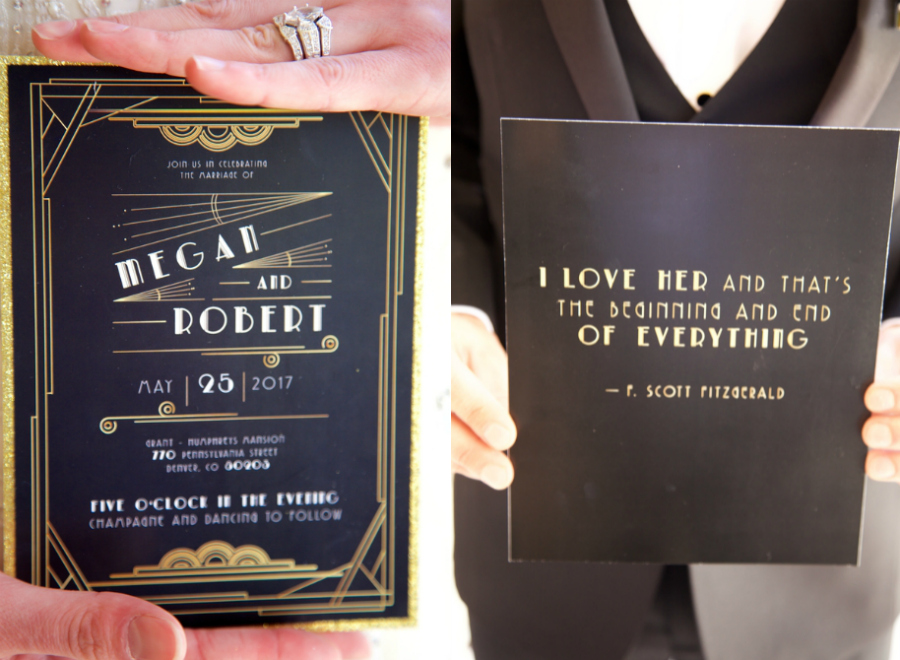 JOIN US IN CELEBRATING
THE MARRIAGE OF
MEGAN
AND
ROBERT
MAY | 25 | 2017
GRANT - HUMPHREYS MANSION
770 PENNSYLVANIA STREET
DENVER, CO 80203
FIVE O'CLOCK IN THE EVENING
CHAMPAGNE AND DANCING TO FOLLOW
I LOVE HER AND THAT'S
THE BEGINNING AND END
OF EVERYTHING
— F. SCOTT FITZGERALD